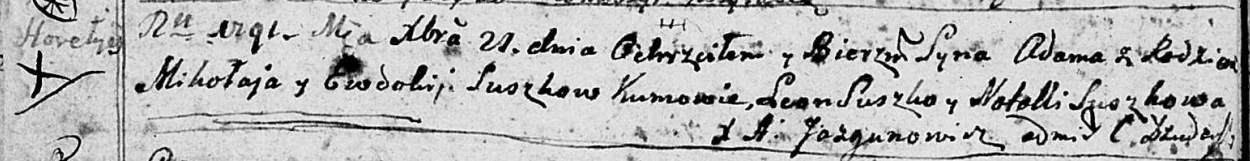 Horełyj
Rku 1791. Mca Xbra 21. dnia Ochrzciłem y Bierzm Syna Adama z Rodzicow
Mikołaja y Ewdokij. Suszkow Kumowie, Leon Suszko y Natalli Suszkowa
X A. Jazgunowicz admi C